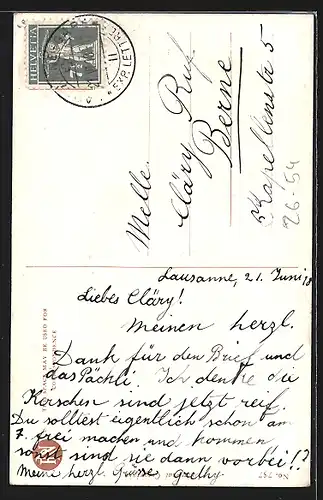 HELVETIA
7½
EXP. LETTRES
Melle.
Cläry Ruf
Berne
Kapellenstr. 5
26-54
THIS SPACE MAY BE USED FOR
CORRESPONDENCE
Lausanne, 21. Juni 18
Liebes Cläry!
Meinen herzl.
Dank für den Brief und
das Päckli. Ich denke die
Kerschen sind jetzt reif.
Du solltest eigentlich schon am
7. frei machen und kommen
sonst sind sie dann vorbei!?
Meine herzl. Grüsse Grethy